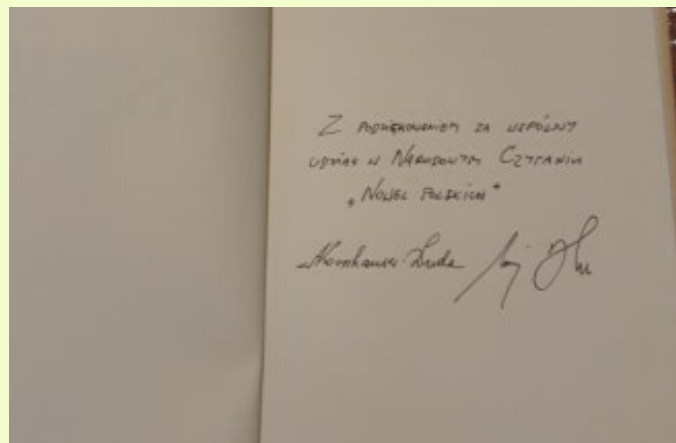 Z PODZIĘKOWANIEM ZA WSPÓLNY
UDZIAŁ W NARODOWYM CZYTANIU
„NOWEL POLSKICH”
AKornhauser-Duda